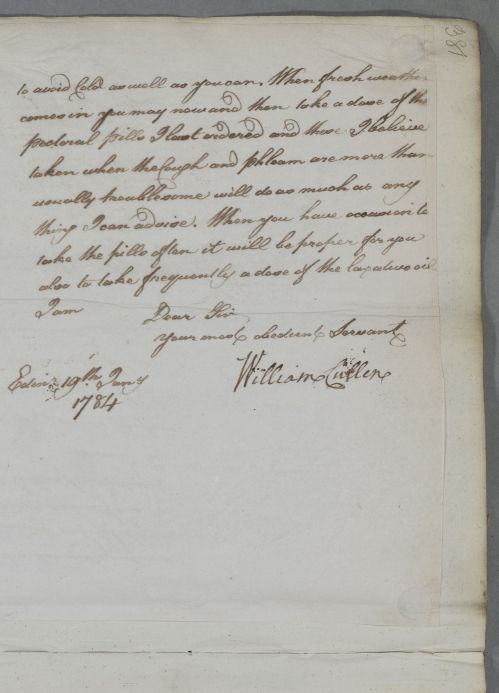 381
to avoid Cold as well as you can. When fresh weather
comes in you may now and then take a dose of the
pectoral pills I last ordered and these I believe
taken when the Cough and phlegm are more than
usually troublesome will do as much as any
thing I can advise. When you have occasion to
take the pills often it will be proper for you
also to take frequently a dose of the laxative oil
I am
Dear Sir
Your most obedient Servant
William Cullen
Edinr. 19th Jany
1784